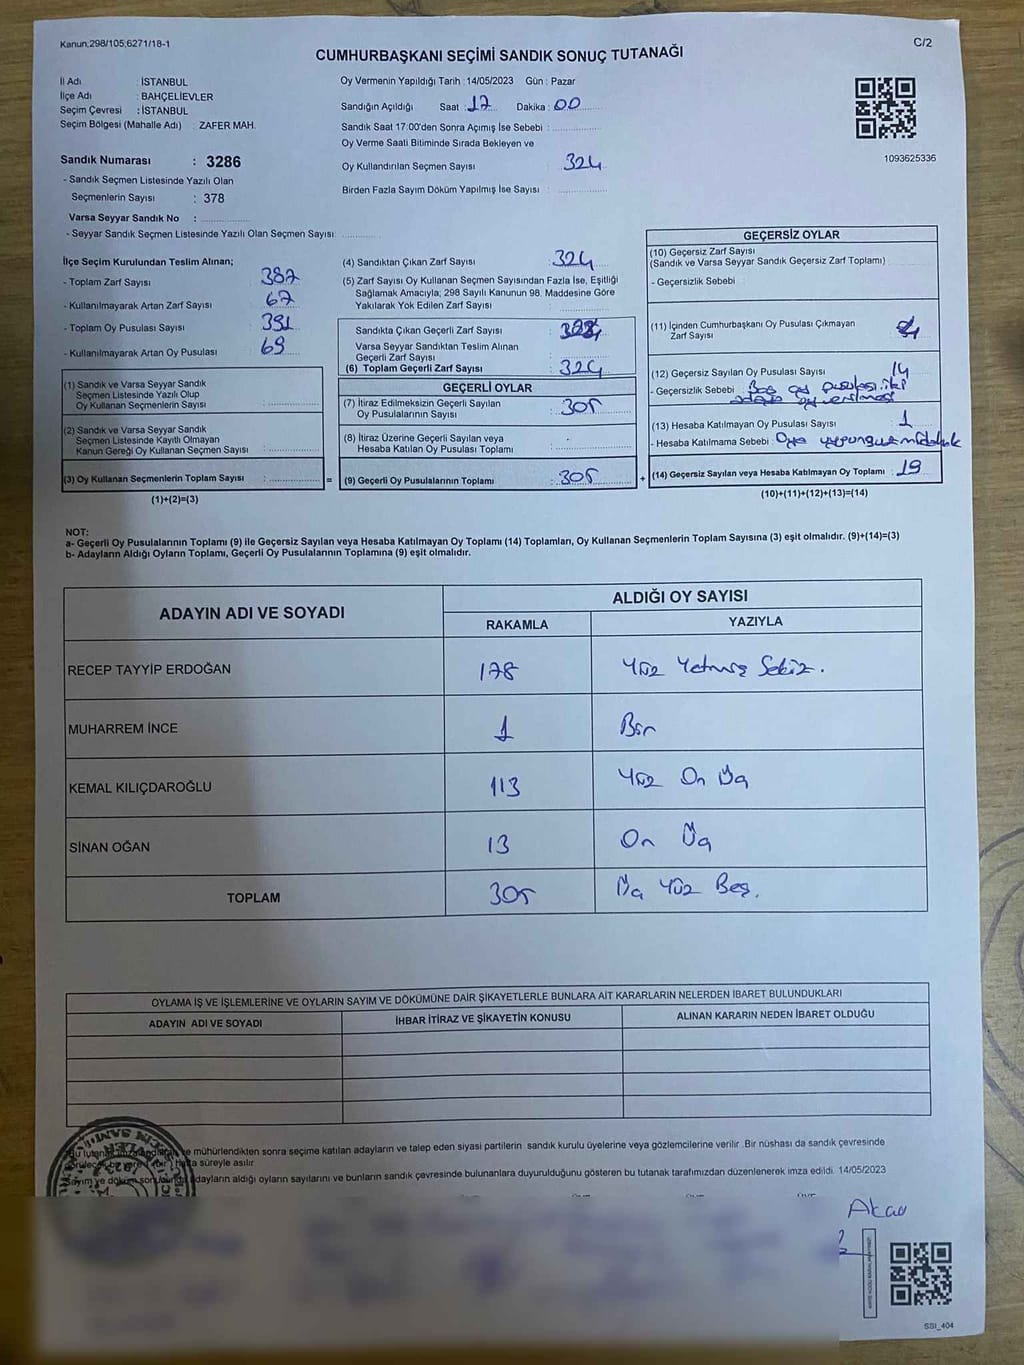 Kanun,298/105;6271/18-1
C/2
CUMHURBAŞKANI SEÇİMİ SANDIK SONUÇ TUTANAĞI
İl Adı : İSTANBUL
İlçe Adı : BAHÇELİEVLER
Seçim Çevresi : İSTANBUL
Seçim Bölgesi (Mahalle Adı) : ZAFER MAH.
Sandık Numarası : 3286
- Sandık Seçmen Listesinde Yazılı Olan
Seçmenlerin Sayısı : 378
Varsa Seyyar Sandık No :
- Seyyar Sandık Seçmen Listesinde Yazılı Olan Seçmen Sayısı:
Oy Vermenin Yapıldığı Tarih :14/05/2023 Gün : Pazar
Sandığın Açıldığı Saat : 17 Dakika : 00
Sandık Saat 17:00'den Sonra Açımış İse Sebebi :
Oy Verme Saati Bitiminde Sırada Bekleyen ve
Oy Kullandırılan Seçmen Sayısı : 324
Birden Fazla Sayım Döküm Yapılmış İse Sayısı :
1093625336
İlçe Seçim Kurulundan Teslim Alınan;
- Toplam Zarf Sayısı : 387
- Kullanılmayarak Artan Zarf Sayısı : 67
- Toplam Oy Pusulası Sayısı : 391
- Kullanılmayarak Artan Oy Pusulası : 69
(1) Sandık ve Varsa Seyyar Sandık
Seçmen Listesinde Yazılı Olup
Oy Kullanan Seçmenlerin Sayısı :
(2) Sandık ve Varsa Seyyar Sandık
Seçmen Listesinde Kayıtlı Olmayan
Kanun Gereği Oy Kullanan Seçmen Sayısı :
(3) Oy Kullanan Seçmenlerin Toplam Sayısı :
(1)+(2)=(3)
=
(4) Sandıktan Çıkan Zarf Sayısı : 324
(5) Zarf Sayısı Oy Kullanan Seçmen Sayısından Fazla İse, Eşitliği
Sağlamak Amacıyla, 298 Sayılı Kanunun 98. Maddesine Göre
Yakılarak Yok Edilen Zarf Sayısı :
Sandıkta Çıkan Geçerli Zarf Sayısı :
Varsa Seyyar Sandıktan Teslim Alınan
Geçerli Zarf Sayısı :
(6) Toplam Geçerli Zarf Sayısı : 324
GEÇERLİ OYLAR
(7) İtiraz Edilmeksizin Geçerli Sayılan
Oy Pusulalarının Sayısı : 305
(8) İtiraz Üzerine Geçerli Sayılan veya
Hesaba Katılan Oy Pusulası Toplamı :
(9) Geçerli Oy Pusulalarının Toplamı : 305
+
GEÇERSİZ OYLAR
(10) Geçersiz Zarf Sayısı
(Sandık ve Varsa Seyyar Sandık Geçersiz Zarf Toplamı) :
- Geçersizlik Sebebi :
(11) İçinden Cumhurbaşkanı Oy Pusulası Çıkmayan
Zarf Sayısı : 4
(12) Geçersiz Sayılan Oy Pusulası Sayısı : 14
- Geçersizlik Sebebi : Boş oy pusulası, iki
adaya oy verilmesi
(13) Hesaba Katılmayan Oy Pusulası Sayısı : 1
- Hesaba Katılmama Sebebi :
(14) Geçersiz Sayılan veya Hesaba Katılmayan Oy Toplamı : 19
(10)+(11)+(12)+(13)=(14)
NOT:
a- Geçerli Oy Pusulalarının Toplamı (9) ile Geçersiz Sayılan veya Hesaba Katılmayan Oy Toplamı (14) Toplamları, Oy Kullanan Seçmenlerin Toplam Sayısına (3) eşit olmalıdır. (9)+(14)=(3)
b- Adayların Aldığı Oyların Toplamı, Geçerli Oy Pusulalarının Toplamına (9) eşit olmalıdır.
ADAYIN ADI VE SOYADI
ALDIĞI OY SAYISI
RAKAMLA YAZIYLA
RECEP TAYYİP ERDOĞAN 178 Yüz Yetmiş Sekiz.
MUHARREM İNCE 1 Bir
KEMAL KILIÇDAROĞLU 113 Yüz On Üç
SİNAN OĞAN 13 On Üç
TOPLAM 305 Üç Yüz Beş.
OYLAMA İŞ VE İŞLEMLERİNE VE OYLARIN SAYIM VE DÖKÜMÜNE DAİR ŞİKAYETLERLE BUNLARA AİT KARARLARIN NELERDEN İBARET BULUNDUKLARI
ADAYIN ADI VE SOYADI İHBAR İTİRAZ VE ŞİKAYETİN KONUSU ALINAN KARARIN NEDEN İBARET OLDUĞU
mühürlendikten sonra seçime katılan adayların ve talep eden siyasi partilerin sandık kurulu üyelerine veya gözlemcilerine verilir .Bir nüshası da sandık çevresinde
süreyle asılır
adayların aldığı oyların sayılarını ve bunların sandık çevresinde bulunanlara duyurulduğunu gösteren bu tutanak tarafımızdan düzenlenerek imza edildi. 14/05/2023
SSI_404